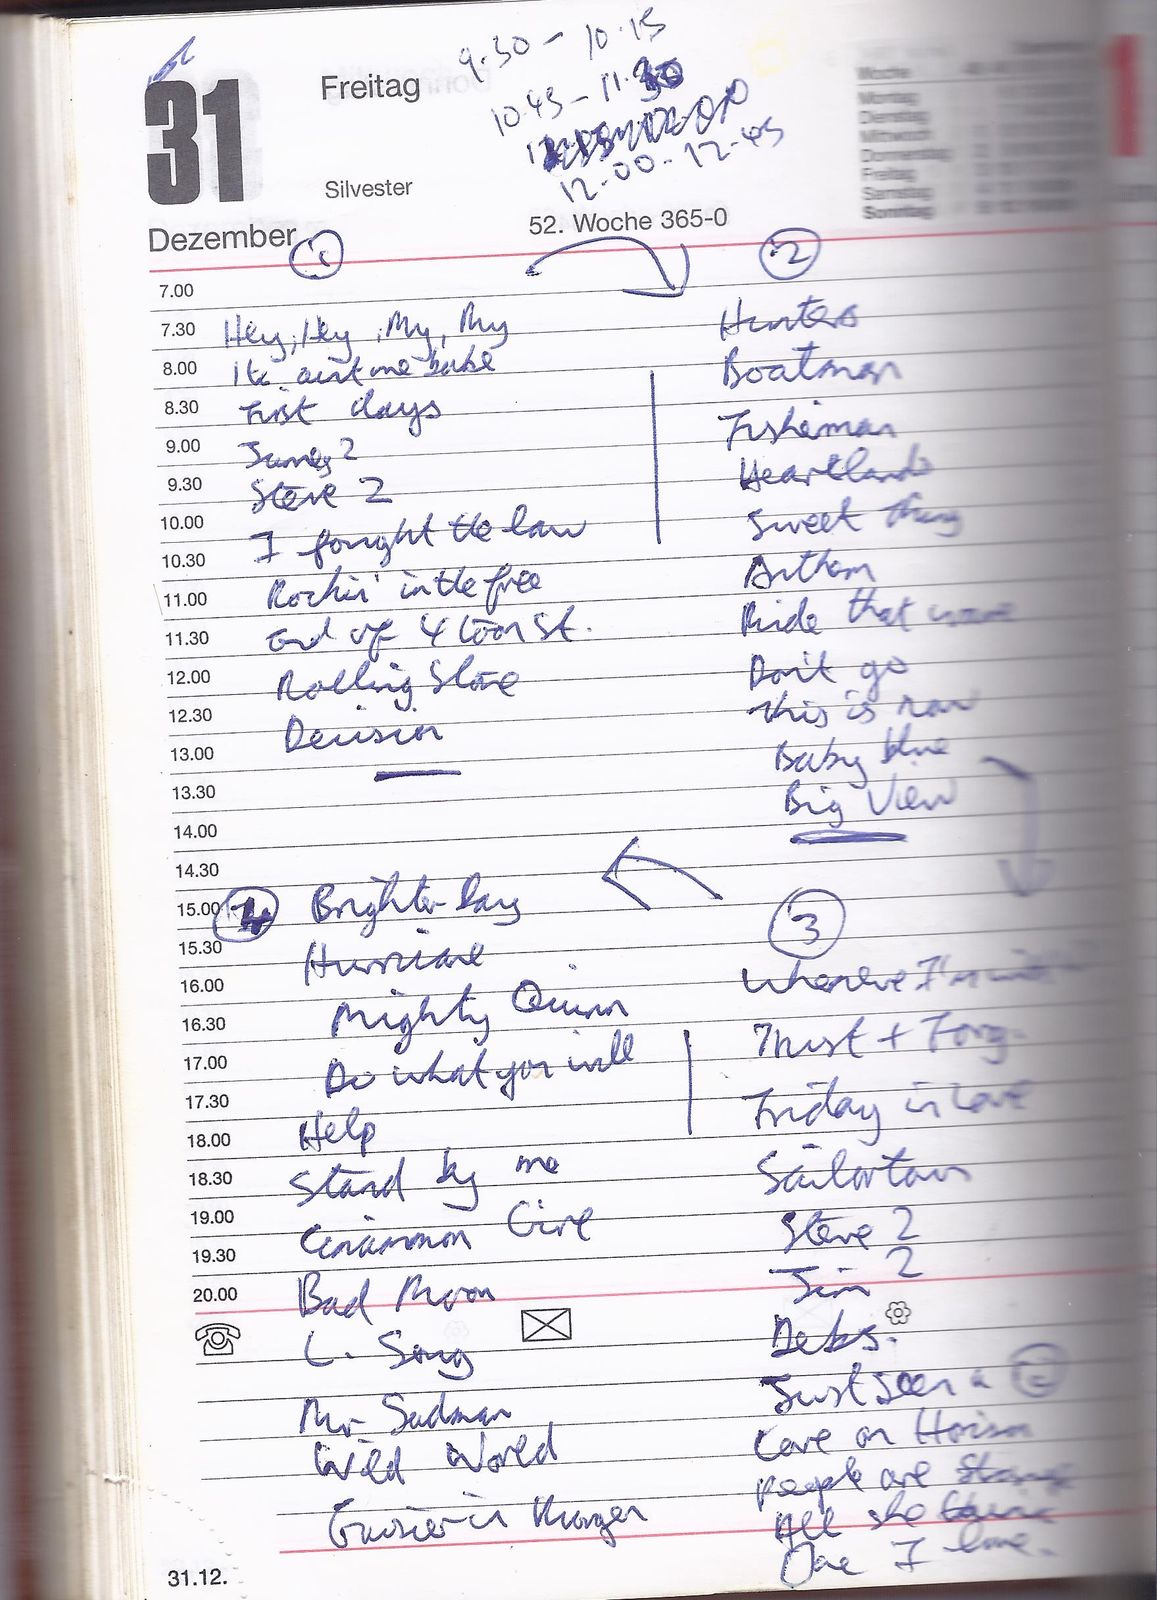 31
Freitag
Silvester
Dezember
52. Woche 365-0
9.30 - 10.15
10.45 - 11.30
12.00 - 12.45
Woche
Montag
Dienstag
Mittwoch
Donnerstag
Freitag
Samstag
Sonntag
1
7.00
7.30 Hey, Hey, My, My
8.00 It ain't me babe
8.30 First days
9.00 James 2
9.30 Steve 2
10.00 I fought the law
10.30
11.00 Rockin' in the free
11.30 End of 4
12.00 Rolling Stone
12.30 Decision
13.00
13.30
14.00
14.30
2
Hunters
Boatman
Fisherman
Heartland
Sweet thing
Anthem
Ride that wave
Don't go
This is now
Baby blue
Big View
3
I'm
Trust + Forg.
Friday in Love
Sailortown
Steve 2
Jim 2
Debs.
Just seen a
Love on Horizon
People are Strange
All she
One I love.
4
15.00 Brighter Day
15.30 Hurricane
16.00
16.30 Mighty Quinn
17.00 Do what you will
17.30
18.00 Help
18.30 Stand by me
19.00 Cinammon Girl
19.30
20.00 Bad Moon
L. Song
Mr Sadman
Wild World
31.12.